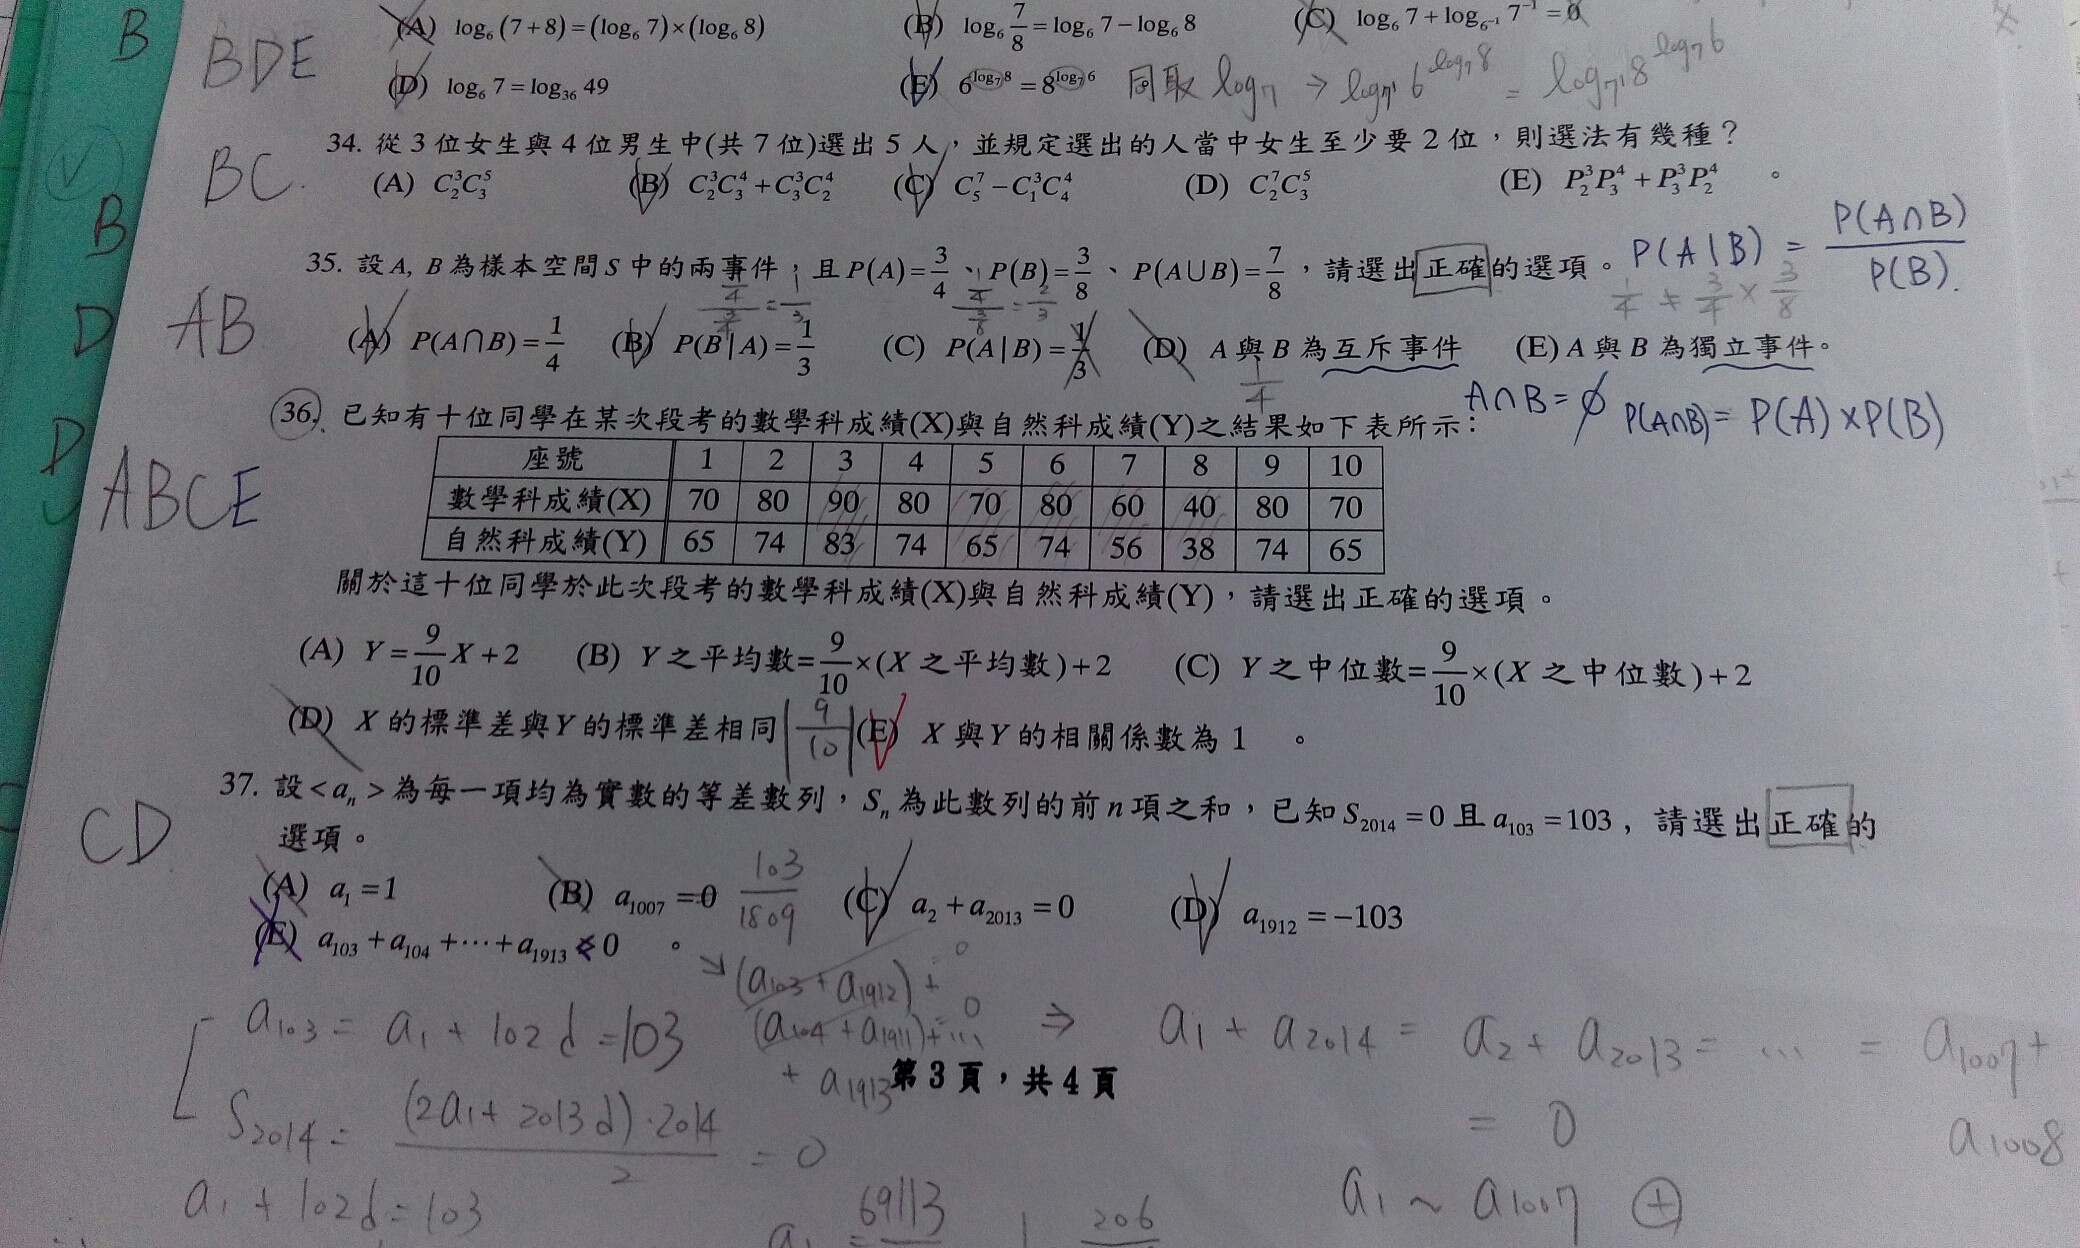 B
BDE
(A) log₆(7+8)=(log₆7)×(log₆8) (B) log₆ 7/8 = log₆7−log₆8 (C) log₆7+log₆₋₁7⁻¹=0
(D) log₆7=log₃₆49 (E) 6^(log₇8)=8^(log₇6) 同取 log₇ → log₇6^(log₇8) = log₇8^(log₇6)
34. 從3位女生與4位男生中(共7位)選出5人,並規定選出的人當中女生至少要2位,則選法有幾種?
BC.
(A) C³₂C⁵₃ (B) C³₂C⁴₃+C³₃C⁴₂ (C) C⁷₅−C³₁C⁴₄ (D) C⁷₂C⁵₃ (E) P³₂P⁴₃+P³₃P⁴₂ 。
B
35. 設A, B為樣本空間S中的兩事件,且P(A)=3/4、P(B)=3/8、P(A∪B)=7/8,請選出正確的選項。
P(A|B) = P(A∩B)/P(B).
1/4 ≠ 3/4 × 3/8
(1/4)/(3/4) = 1/3
(1/4)/(3/8) = 2/3
D
AB
(A) P(A∩B)=1/4 (B) P(B|A)=1/3 (C) P(A|B)=1/3 (D) A與B為互斥事件 (E) A與B為獨立事件。
1/4
A∩B=∅ P(A∩B)= P(A)×P(B)
36. 已知有十位同學在某次段考的數學科成績(X)與自然科成績(Y)之結果如下表所示:
D
ABCE
座號 1 2 3 4 5 6 7 8 9 10
數學科成績(X) 70 80 90 80 70 80 60 40 80 70
自然科成績(Y) 65 74 83 74 65 74 56 38 74 65
關於這十位同學於此次段考的數學科成績(X)與自然科成績(Y),請選出正確的選項。
(A) Y=9/10 X+2 (B) Y之平均數=9/10×(X之平均數)+2 (C) Y之中位數=9/10×(X之中位數)+2
(D) X的標準差與Y的標準差相同 |9/10| (E) X與Y的相關係數為1 。
37. 設<aₙ>為每一項均為實數的等差數列,Sₙ為此數列的前n項之和,已知S₂₀₁₄=0且a₁₀₃=103, 請選出正確的
選項。
CD
(A) a₁=1 (B) a₁₀₀₇=0 103/1809 (C) a₂+a₂₀₁₃=0 (D) a₁₉₁₂=−103
(E) a₁₀₃+a₁₀₄+⋯+a₁₉₁₃<0 。
→ (a₁₀₃+a₁₉₁₂)+ 0
(a₁₀₄+a₁₉₁₁)+… 0
+ a₁₉₁₃
a₁₀₃ = a₁+102d=103
⇒ a₁+a₂₀₁₄ = a₂+a₂₀₁₃= … = a₁₀₀₇+
a₁₀₀₈
= 0
第3頁,共4頁
S₂₀₁₄= (2a₁+2013d)·2014/2 = 0
a₁+102d=103
a₁ = 69113
206
a₁~a₁₀₀₇ ⊕